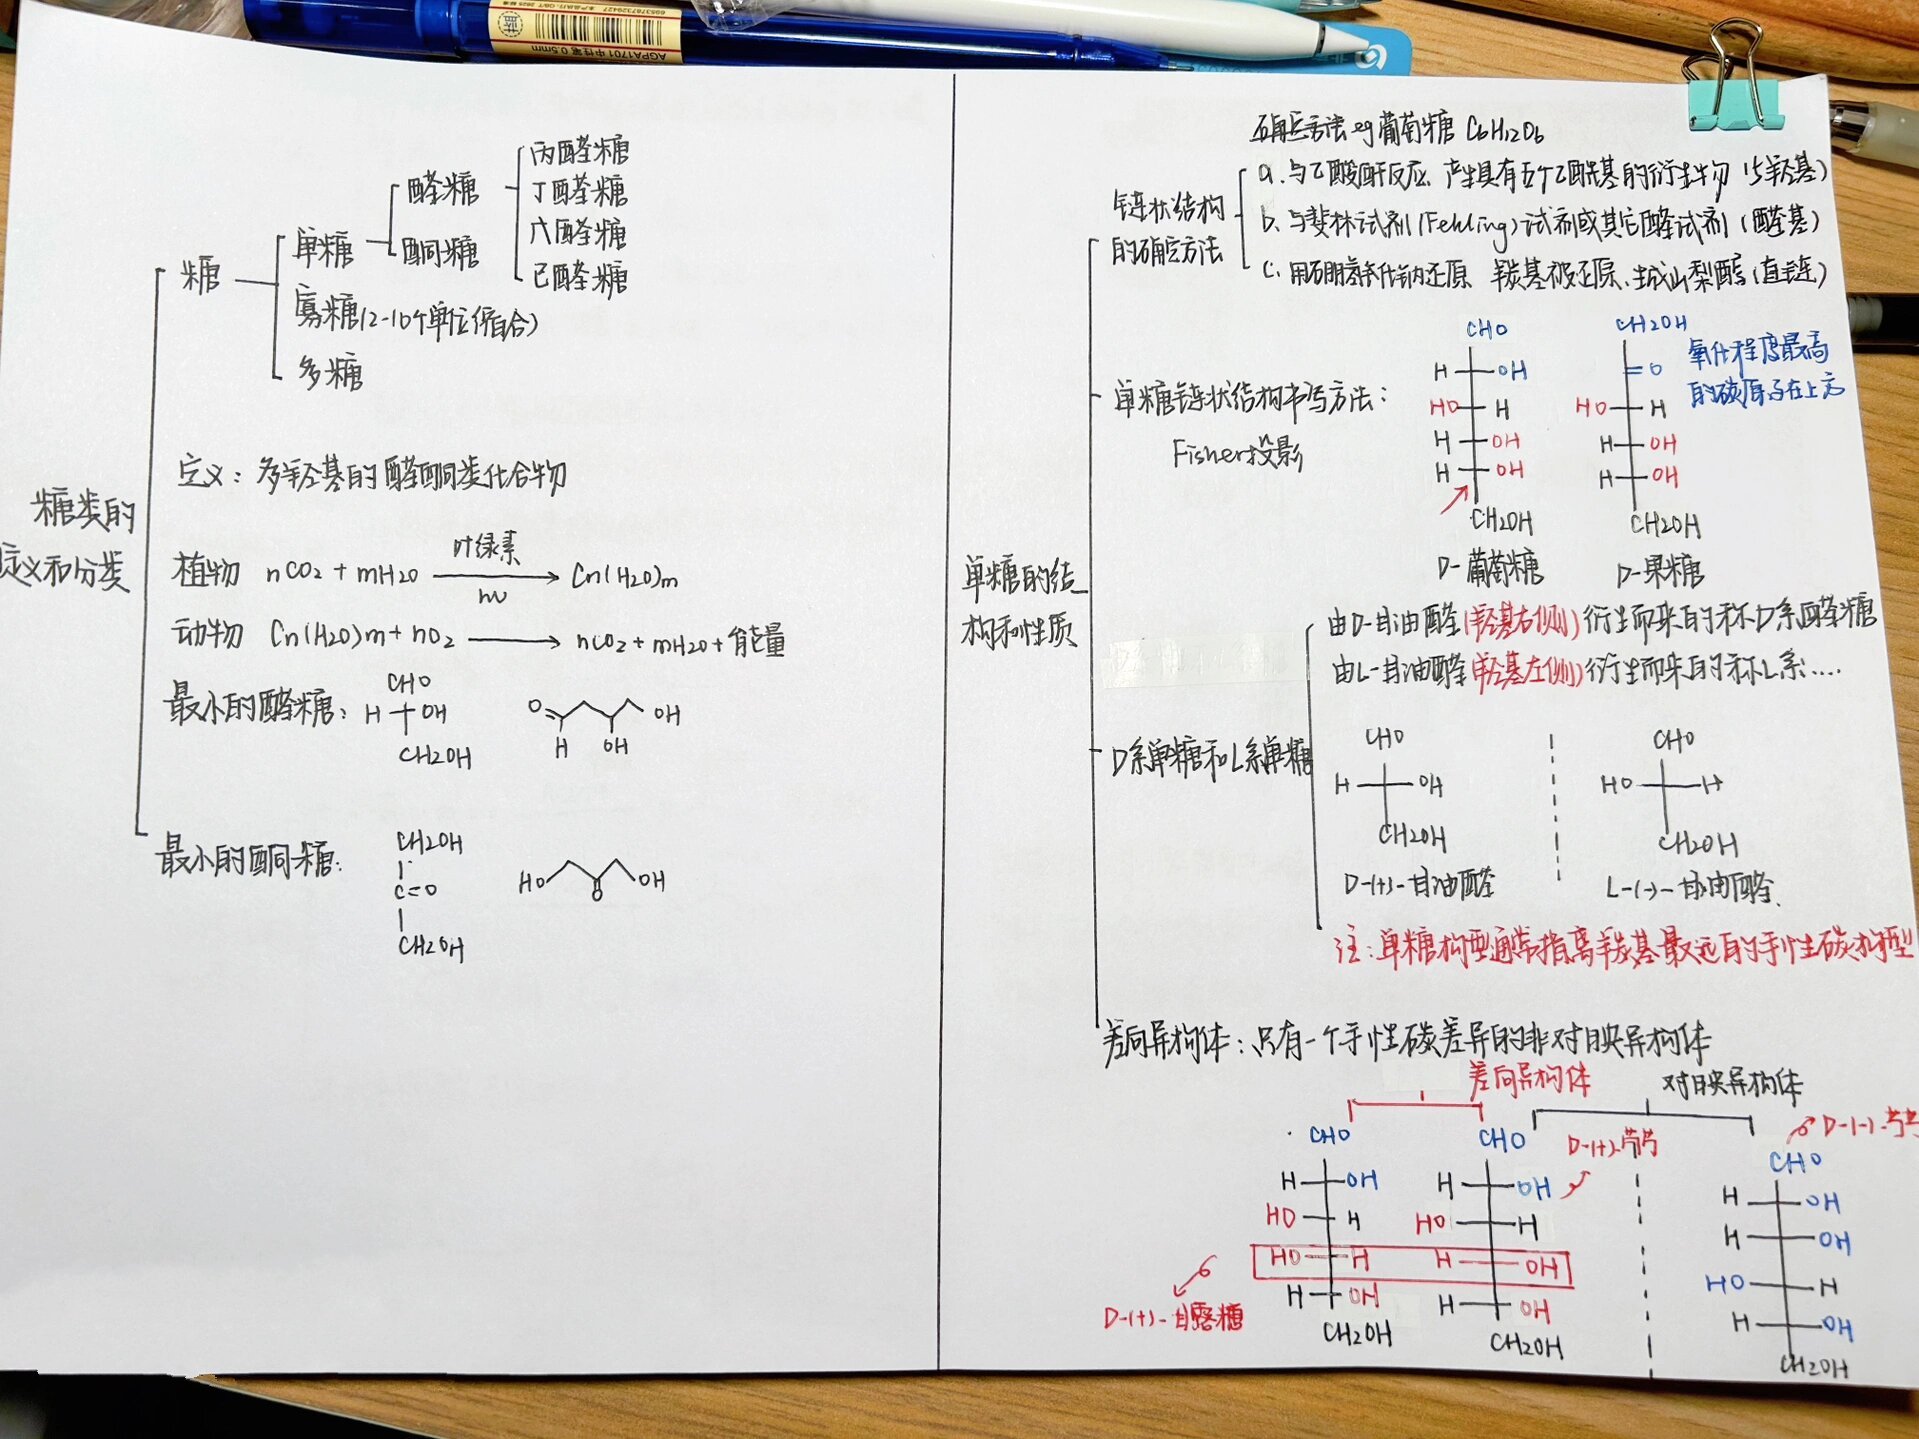 6953787329427
AGPA1701 中性笔 0.5mm
糖类的
定义和分类
糖
单糖
醛糖
丙醛糖
丁醛糖
六醛糖
己醛糖
酮糖
寡糖(2-10个单位缩合)
多糖
定义：多羟基的醛酮类化合物
植物 nCO2 + mH2O 叶绿素 hv Cn(H2O)m
动物 Cn(H2O)m + nO2 nCO2 + mH2O + 能量
最小的醛糖：
CHO
H OH
CH2OH
O H OH OH
最小的酮糖：
CH2OH
C=O
CH2OH
HO O OH
单糖的结
构和性质
确定方法 eg 葡萄糖 C6H12O6
链状结构
的确定方法
a. 与乙酸酐反应、产生具有五个乙酰基的衍生物 (5羟基)
b. 与斐林试剂(Fehling)试剂或其它醛试剂 (醛基)
c. 用硼氢化钠还原 羰基被还原、生成山梨醇 (直链)
单糖链状结构书写方法：
Fisher投影
CHO
H OH
HO H
H OH
H OH
CH2OH
D-葡萄糖
CH2OH
=O
HO H
H OH
H OH
CH2OH
D-果糖
氧化程度最高
的碳原子在上方
D系单糖和L系单糖
由D-甘油醛(羟基右侧)衍生而来的称D系醛糖
由L-甘油醛(羟基左侧)衍生而来的称L系....
CHO
H OH
CH2OH
D-(+)-甘油醛
CHO
HO H
CH2OH
L-(-)-甘油醛.
注：单糖构型通常指离羰基最远的手性碳构型
差向异构体：只有一个手性碳差异的非对映异构体
差向异构体
对映异构体
CHO
H OH
HO H
HO H
H OH
CH2OH
D-(+)-甘露糖
CHO
H OH
HO H
H OH
H OH
CH2OH
D-(+)-
D-(-)-
CHO
H OH
H OH
HO H
H OH
CH2OH